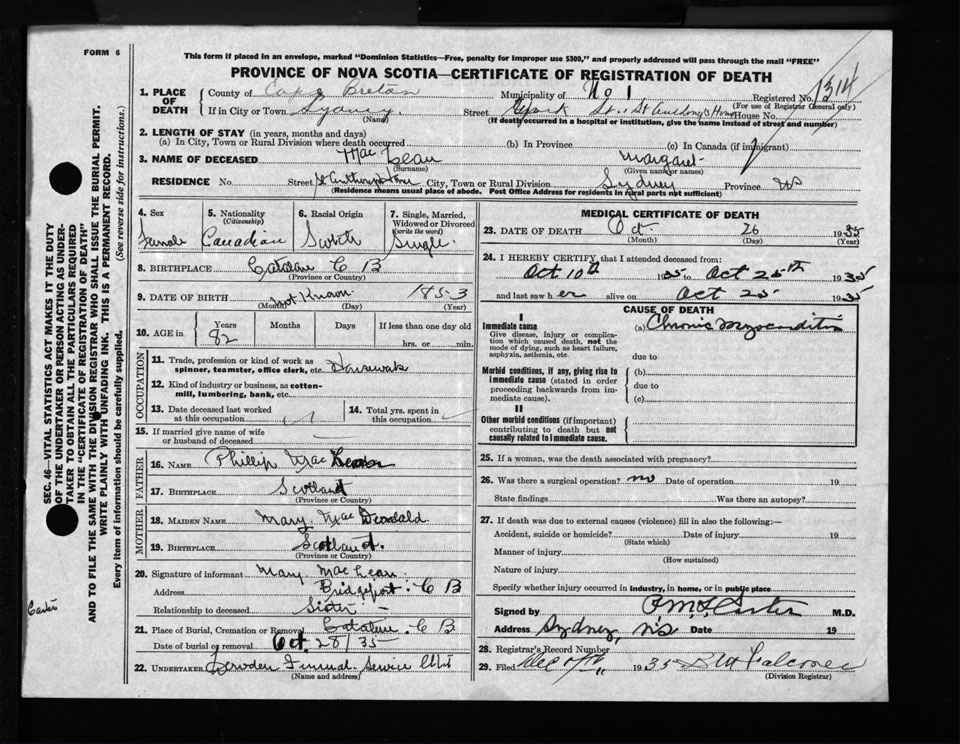 FORM 6
This form if placed in an envelope, marked "Dominion Statistics—Free, penalty for improper use $300," and properly addressed will pass through the mail "FREE"
PROVINCE OF NOVA SCOTIA—CERTIFICATE OF REGISTRATION OF DEATH
1. PLACE OF DEATH
County of Cape Breton Municipality of No 1 Registered No. 1314
(For use of Registrar General only)
If in City or Town Sydney Street House No.
(Name) (If death occurred in a hospital or institution, give the name instead of street and number)
2. LENGTH OF STAY (in years, months and days)
(a) In City, Town or Rural Division where death occurred (b) In Province (c) In Canada (if immigrant)
3. NAME OF DECEASED Mac Lean Margaret
(Given name or names)
RESIDENCE No. Street City, Town or Rural Division Sydney Province NS
(Residence means usual place of abode. Post Office Address for residents in rural parts not sufficient)
SEC. 46—VITAL STATISTICS ACT MAKES IT THE DUTY
OF THE UNDERTAKER OR PERSON ACTING AS UNDER-
TAKER TO OBTAIN ALL THE PARTICULARS REQUIRED
IN THE "CERTIFICATE OF REGISTRATION OF DEATH"
AND TO FILE THE SAME WITH THE DIVISION REGISTRAR WHO SHALL ISSUE THE BURIAL PERMIT.
WRITE PLAINLY WITH UNFADING INK. THIS IS A PERMANENT RECORD.
Every item of information should be carefully supplied. (See reverse side for instructions.)
4. Sex 5. Nationality 6. Racial Origin 7. Single, Married,
(Citizenship) Widowed or Divorced
(write the word)
Female Canadian Scotch Single
8. BIRTHPLACE Catalone C B
(Province or Country)
9. DATE OF BIRTH Not Known 1853
(Month) (Day) (Year)
10. AGE in Years Months Days If less than one day old
82 hrs. or min.
OCCUPATION
11. Trade, profession or kind of work as
spinner, teamster, office clerk, etc. Housework
12. Kind of industry or business, as cotton-
mill, lumbering, bank, etc.
13. Date deceased last worked
at this occupation
14. Total yrs. spent in
this occupation
15. If married give name of wife
or husband of deceased
FATHER
16. NAME Phillip MacLean
17. BIRTHPLACE Scotland
(Province or Country)
MOTHER
18. MAIDEN NAME Mary MacDonald
19. BIRTHPLACE Scotland
(Province or Country)
20. Signature of informant Mary MacLean
Address Bridgeport C B
Relationship to deceased Sister
21. Place of Burial, Cremation or Removal Catalone C B
Date of burial or removal Oct 28/35
22. UNDERTAKER Funeral Service
(Name and address)
MEDICAL CERTIFICATE OF DEATH
23. DATE OF DEATH Oct 26 1935
(Month) (Day) (Year)
24. I HEREBY CERTIFY that I attended deceased from:
Oct 10th 1935 to Oct 25th 1935
and last saw her alive on Oct 25 1935
CAUSE OF DEATH
I
Immediate cause (a) Chronic Myocarditis
Give disease, injury or complica-
tion which caused death, not the
mode of dying, such as heart failure,
asphyxia, asthenia, etc.
due to
Morbid conditions, if any, giving rise to
immediate cause (stated in order
proceeding backwards from im-
mediate cause).
(b)
due to
(c)
II
Other morbid conditions (if important)
contributing to death but not
causally related to immediate cause.
25. If a woman, was the death associated with pregnancy?
26. Was there a surgical operation? no Date of operation 19
State findings Was there an autopsy?
27. If death was due to external causes (violence) fill in also the following:—
Accident, suicide or homicide? Date of injury 19
(State which)
Manner of injury
(How sustained)
Nature of injury
Specify whether injury occurred in industry, in home, or in public place
Signed by M.D.
Address Sydney, NS Date 19
28. Registrar's Record Number
29. Filed 1935
(Division Registrar)